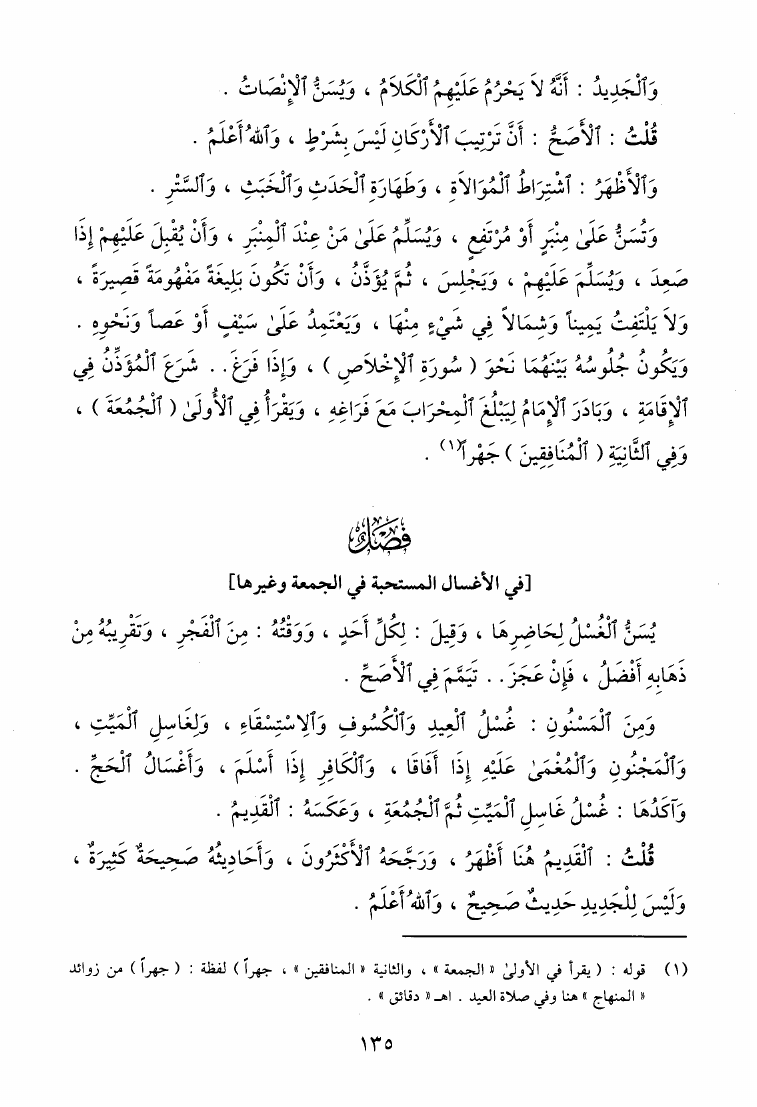 وَٱلْجَدِيدُ : أَنَّهُ لاَ يَحْرُمُ عَلَيْهِمُ ٱلْكَلاَمُ ، وَيُسَنُّ ٱلإِنْصَاتُ .
قُلْتُ : ٱلأَصَحُّ : أَنَّ تَرْتِيبَ ٱلأَرْكَانِ لَيْسَ بِشَرْطٍ ، وَٱللهُ أَعْلَمُ .
وَٱلأَظْهَرُ : ٱشْتِرَاطُ ٱلْمُوَالاَةِ ، وَطَهَارَةِ ٱلْحَدَثِ وَٱلْخَبَثِ ، وَٱلسَّتْرِ .
وَتُسَنُّ عَلَىٰ مِنْبَرٍ أَوْ مُرْتَفِعٍ ، وَيُسَلِّمُ عَلَىٰ مَنْ عِنْدَ ٱلْمِنْبَرِ ، وَأَنْ يُقْبِلَ عَلَيْهِمْ إِذَا
صَعِدَ ، وَيُسَلِّمَ عَلَيْهِمْ ، وَيَجْلِسَ ، ثُمَّ يُؤَذَّنُ ، وَأَنْ تَكُونَ بَلِيغَةً مَفْهُومَةً قَصِيرَةً ،
وَلاَ يَلْتَفِتُ يَمِيناً وَشِمَالاً فِي شَيْءٍ مِنْهَا ، وَيَعْتَمِدُ عَلَىٰ سَيْفٍ أَوْ عَصاً وَنَحْوِهِ .
وَيَكُونُ جُلُوسُهُ بَيْنَهُمَا نَحْوَ ( سُورَةِ ٱلإِخْلاَصِ ) ، وَإِذَا فَرَغَ . . شَرَعَ ٱلْمُؤَذِّنُ فِي
ٱلإِقَامَةِ ، وَبَادَرَ ٱلإِمَامُ لِيَبْلُغَ ٱلْمِحْرَابَ مَعَ فَرَاغِهِ ، وَيَقْرَأُ فِي ٱلأُولَىٰ ( ٱلْجُمُعَةَ ) ،
وَفِي ٱلثَّانِيَةِ ( ٱلْمُنَافِقِينَ ) جَهْراً(١) .
فَصْلٌ
[في الأغسال المستحبة في الجمعة وغيرها]
يُسَنُّ ٱلْغُسْلُ لِحَاضِرِهَا ، وَقِيلَ : لِكُلِّ أَحَدٍ ، وَوَقْتُهُ : مِنَ ٱلْفَجْرِ ، وَتَقْرِيبُهُ مِنْ
ذَهَابِهِ أَفْضَلُ ، فَإِنْ عَجَزَ . . تَيَمَّمَ فِي ٱلأَصَحِّ .
وَمِنَ ٱلْمَسْنُونِ : غُسْلُ ٱلْعِيدِ وَٱلْكُسُوفِ وَٱلِاسْتِسْقَاءِ ، وَلِغَاسِلِ ٱلْمَيِّتِ ،
وَٱلْمَجْنُونِ وَٱلْمُغْمَىٰ عَلَيْهِ إِذَا أَفَاقَا ، وَٱلْكَافِرِ إِذَا أَسْلَمَ ، وَأَغْسَالُ ٱلْحَجِّ .
وَآكَدُهَا : غُسْلُ غَاسِلِ ٱلْمَيِّتِ ثُمَّ ٱلْجُمُعَةِ ، وَعَكَسَهُ : ٱلْقَدِيمُ .
قُلْتُ : ٱلْقَدِيمُ هُنَا أَظْهَرُ ، وَرَجَّحَهُ ٱلأَكْثَرُونَ ، وَأَحَادِيثُهُ صَحِيحَةٌ كَثِيرَةٌ ،
وَلَيْسَ لِلْجَدِيدِ حَدِيثٌ صَحِيحٌ ، وَٱللهُ أَعْلَمُ .
(١) قوله : ( يقرأ في الأولىٰ « الجمعة » ، والثانية « المنافقين » ، جهراً ) لفظة : ( جهراً ) من زوائد
« المنهاج » هنا وفي صلاة العيد . اهـ « دقائق » .
١٣٥